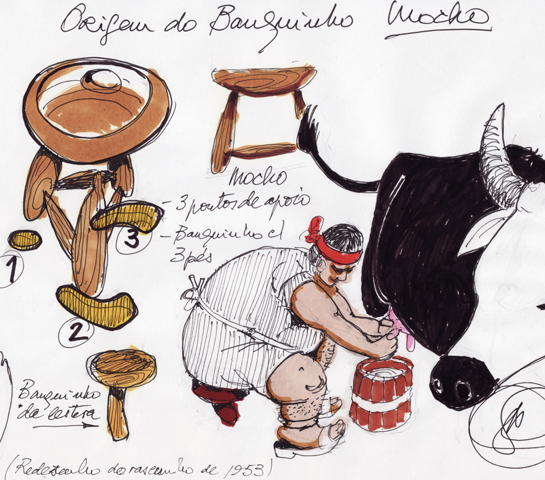 Origem do Banquinho Mocho
Mocho
- 3 pontos de apoio
- Banquinho c/
3 pés
1
3
2
Banquinho
da leitera
(Redesenho do rascunho de 1953)